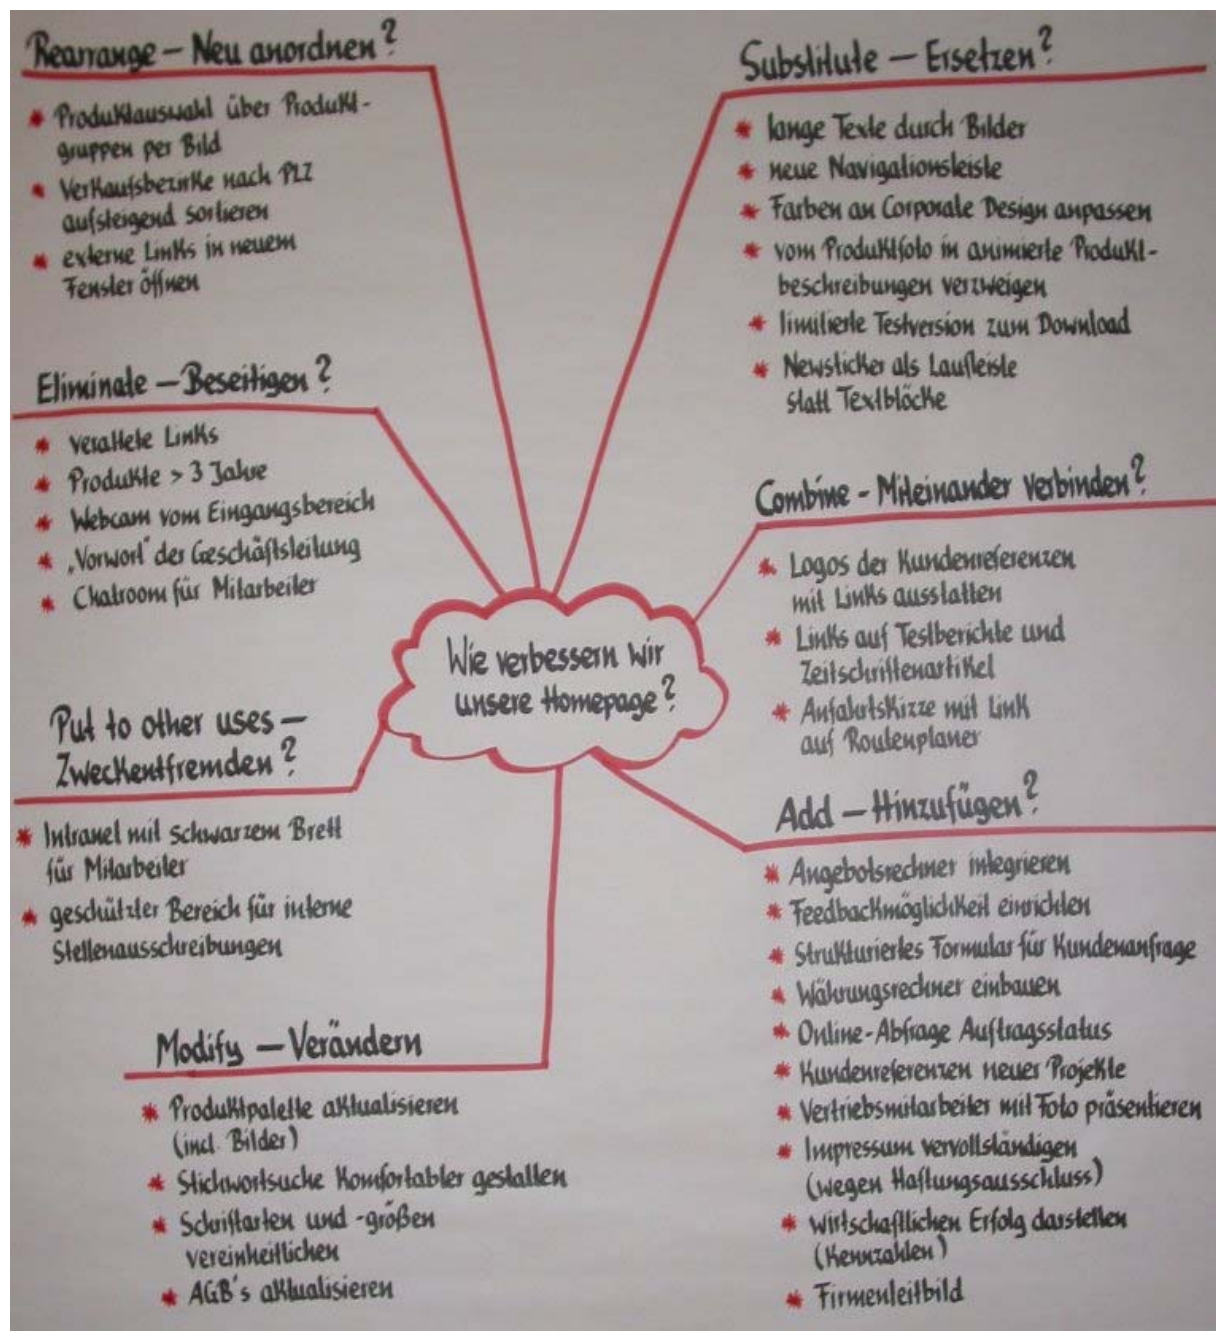 Rearrange – Neu anordnen?
* Produktauswahl über Produkt-
gruppen per Bild
* Verkaufsbezirke nach PLZ
aufsteigend sortieren
* externe Links in neuem
Fenster öffnen
Eliminate – Beseitigen?
* veraltete Links
* Produkte > 3 Jahre
* Webcam vom Eingangsbereich
* „Vorwort" der Geschäftsleitung
* Chatroom für Mitarbeiter
Put to other uses –
Zweckentfremden?
* Intranet mit schwarzem Brett
für Mitarbeiter
* geschützter Bereich für interne
Stellenausschreibungen
Modify – Verändern
* Produktpalette aktualisieren
(incl. Bilder)
* Stichwortsuche komfortabler gestalten
* Schriftarten und -größen
vereinheitlichen
* AGB's aktualisieren
Wie verbessern wir
unsere Homepage?
Substitute – Ersetzen?
* lange Texte durch Bilder
* neue Navigationsleiste
* Farben an Corporate Design anpassen
* vom Produktfoto in animierte Produkt-
beschreibungen verzweigen
* limitierte Testversion zum Download
* Newsticker als Laufleiste
statt Textblöcke
Combine - Miteinander verbinden?
* Logos der Kundenreferenzen
mit Links ausstatten
* Links auf Testberichte und
Zeitschriftenartikel
* Anfahrtskizze mit Link
auf Routenplaner
Add – Hinzufügen?
* Angebotsrechner integrieren
* Feedbackmöglichkeit einrichten
* Strukturiertes Formular für Kundenanfrage
* Währungsrechner einbauen
* Online-Abfrage Auftragsstatus
* Kundenreferenzen neuer Projekte
* Vertriebsmitarbeiter mit Foto präsentieren
* Impressum vervollständigen
(wegen Haftungsausschluss)
* wirtschaftlichen Erfolg darstellen
(Kennzahlen)
* Firmenleitbild